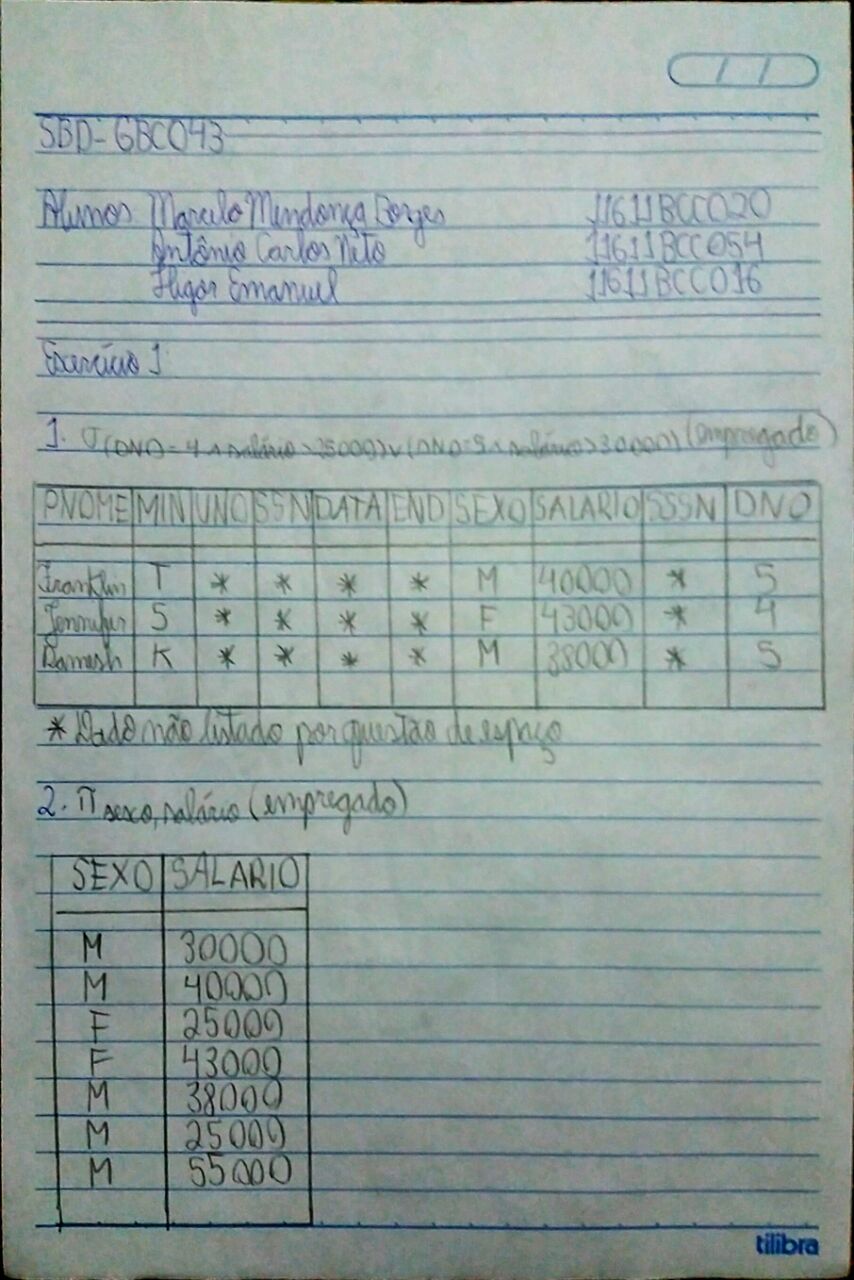 SBD - GBC043
Alunos: Marcelo Mendonça Borges 11611BCC020
Antônio Carlos Neto 11611BCC054
Higor Emanuel 11611BCC016
Exercício 1:
1. σ(DNO = 4 ∧ salário > 25000) ∨ (DNO = 5 ∧ salário > 30000) (empregado)
PNOME MIN UNO SSN DATA END SEXO SALARIO SSSN DNO
Franklin T * * * * M 40000 * 5
Jennifer S * * * * F 43000 * 4
Ramesh K * * * * M 38000 * 5
* Dado não listado por questão de espaço
2. π sexo, salário (empregado)
SEXO SALARIO
M 30000
M 40000
F 25000
F 43000
M 38000
M 25000
M 55000
tilibra